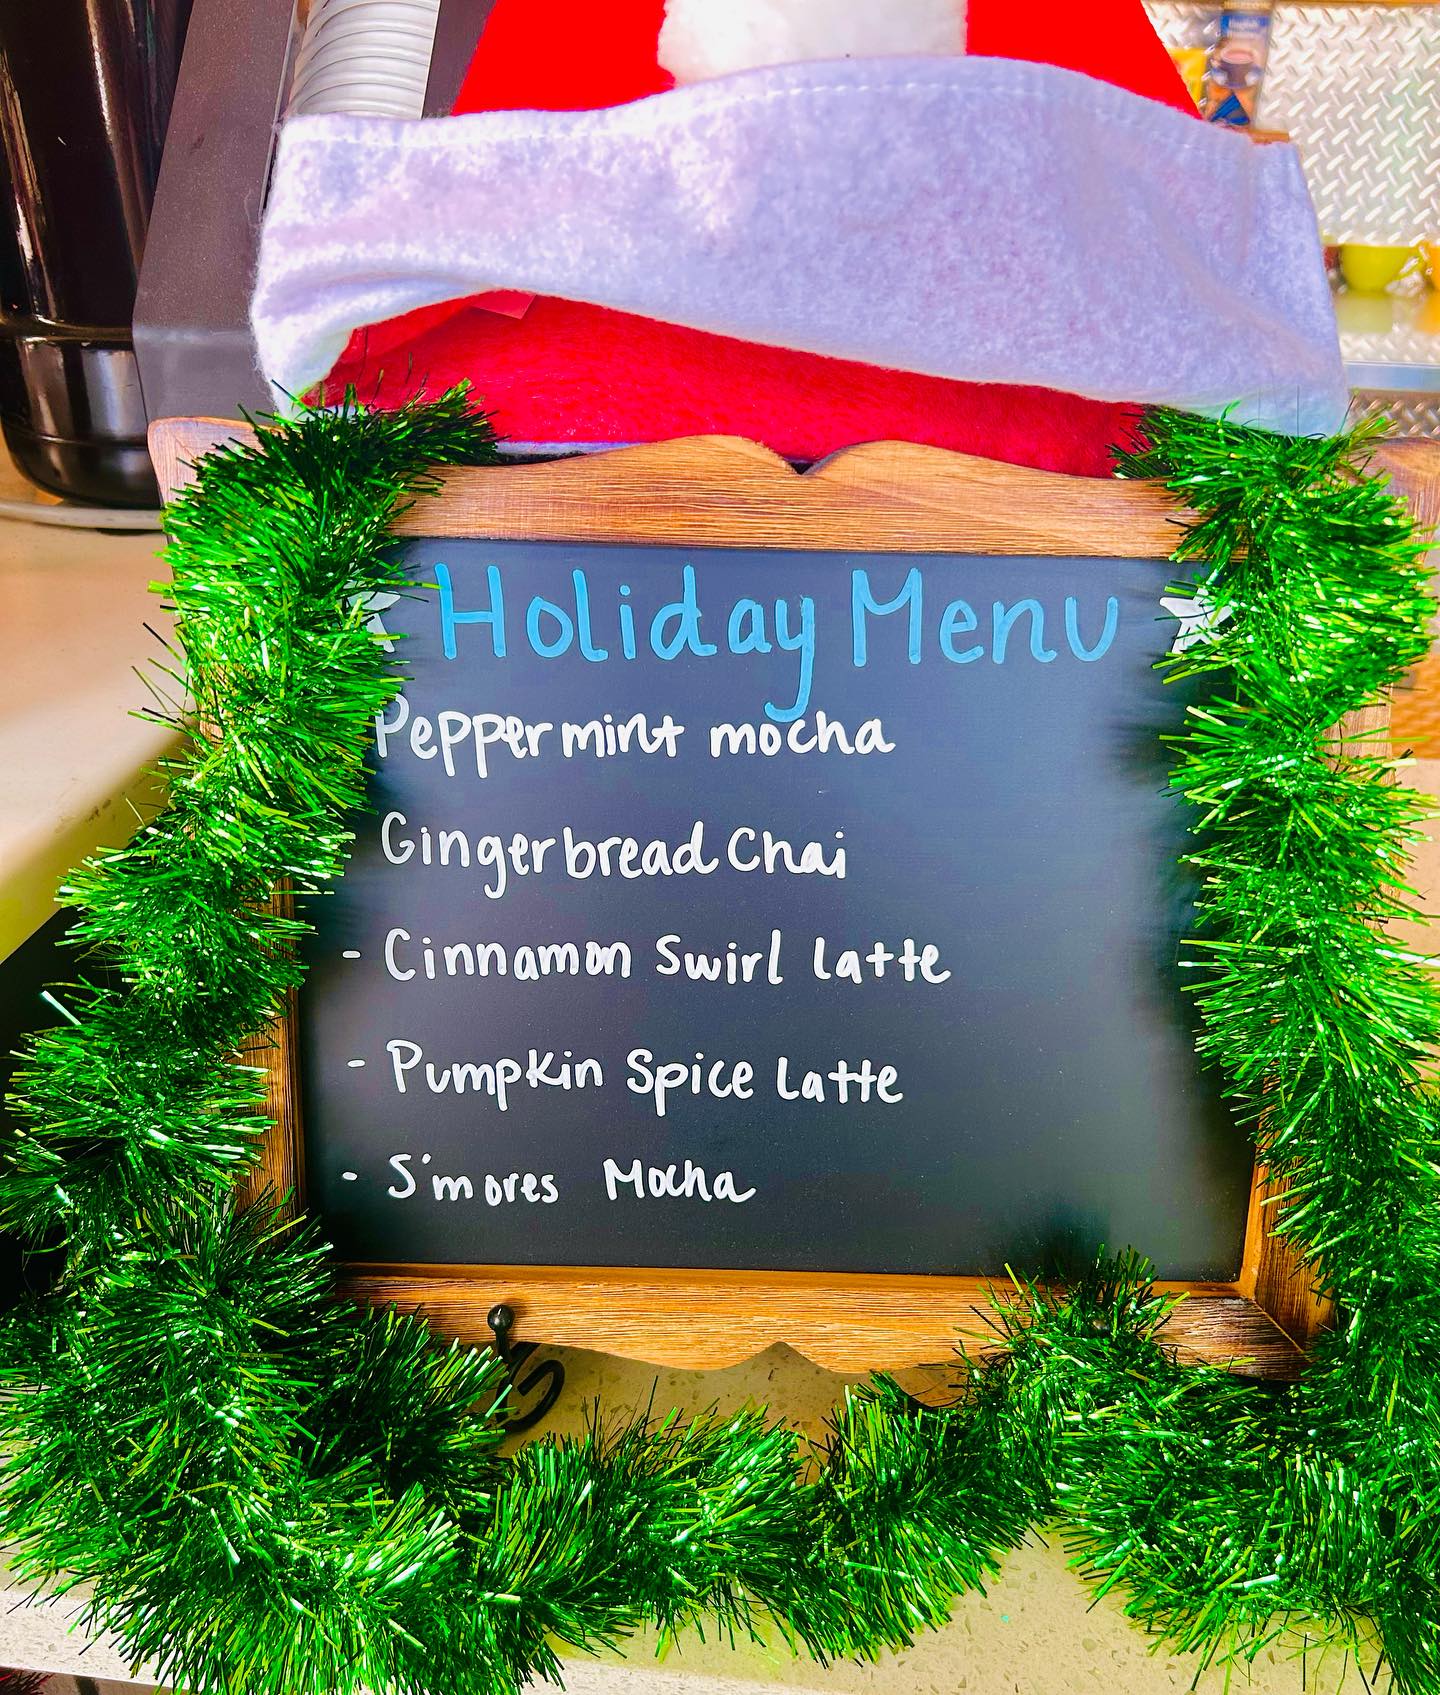 Holiday Menu
Peppermint mocha
Gingerbread Chai
- Cinnamon Swirl Latte
- Pumpkin Spice Latte
- S'mores Mocha